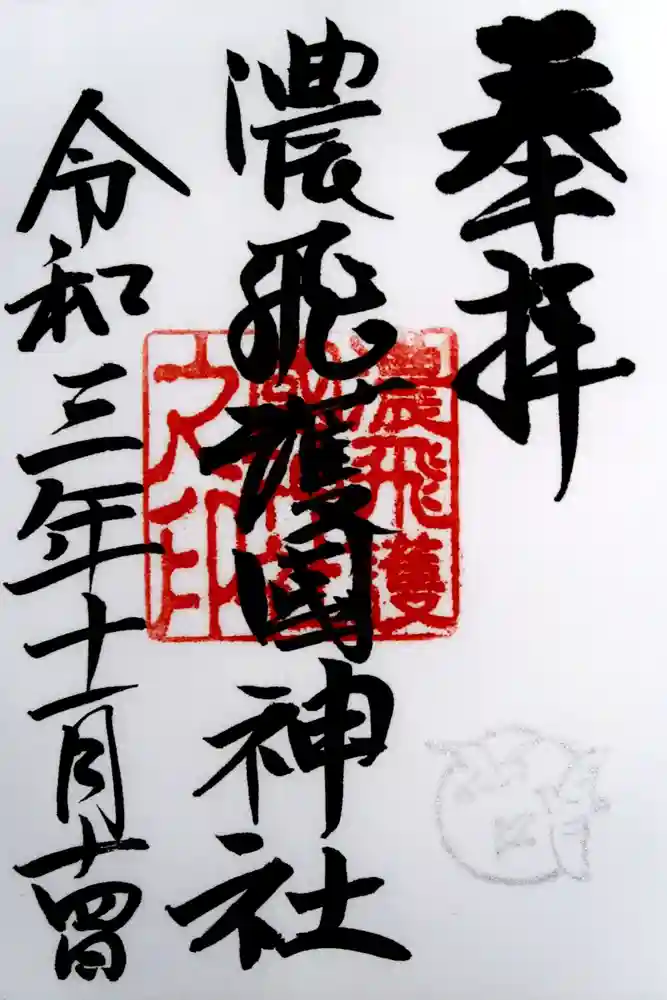 奉拝
濃飛護國神社
濃飛護
國神社
之印
令和三年十一月十四日